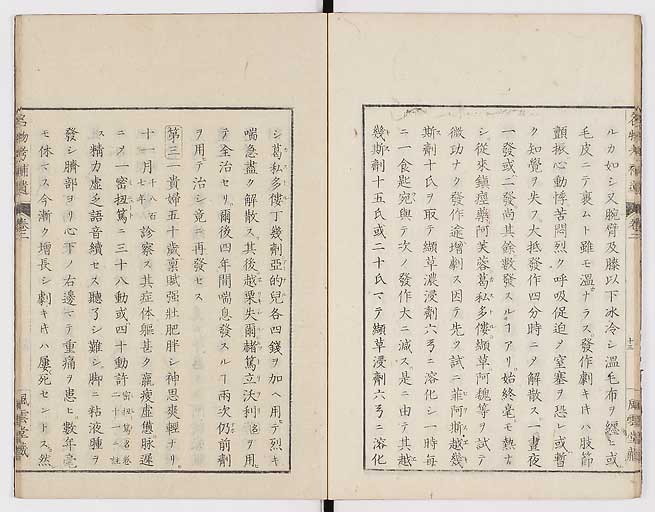 ルカ如シ又腕臂及膝以下氷冷シ溫毛布ヲ纏ヒ或
毛皮ニテ裹ムト雖モ溫ナラス發作劇キ片ハ肢節
顫振心動悸苦悶烈ク呼吸促迫ノ窒塞ヲ恐レ或暫
ク知覺ヲ失フ大抵發作四分時ニノ解散ス一晝夜
一發或二發尚其餘數發スルヿアリ始終毫モ熱ナ
シ從來鎮痙藥阿芙蓉葛私多僂纈草阿魏等ヲ試テ
微功ナク發作逾增劇ス因テ先ク試ニ菲阿斯越幾
斯劑十氏ヲ取テ纈草濃浸劑六弓ニ溶化シ一時每
ニ一食匙宛與テ次ノ發作大ニ減ス是ニ由テ其越
幾斯劑十五氏或二十氏マテ纈草浸劑六弓ニ溶化
シ葛私多僂丁幾劑亞的兒各四錢ヲ加ヘ用テ烈キ
喘急盡ク解散ス其後越栗失爾楮篤立沃利名ヲ用
テ全治セリ爾後四年間喘息發スルヿ兩次仍前劑
ヲ用テ治シ竟ニ再發セス
第三一貴婦五十歲稟賦强壯肥胖シ神思爽輕ナリ
十一月千八百十七年診察ス其症体軀甚ク羸瘦虛憊脉遲
ニノ一密扭篤ニ三十八動或四十動許密扭篤名卷二十一ニ註
ス精力虛乏語音續セス聽了シ難シ脚ニ粘液腫ヲ
發シ臍部ヨリ心下ノ右邊マテ重痛ヲ患ヒ數年毫
モ休マス今漸ク增長シ劇キ片ハ屢死セントス然
名物考補遺
卷三
風雲堂藏